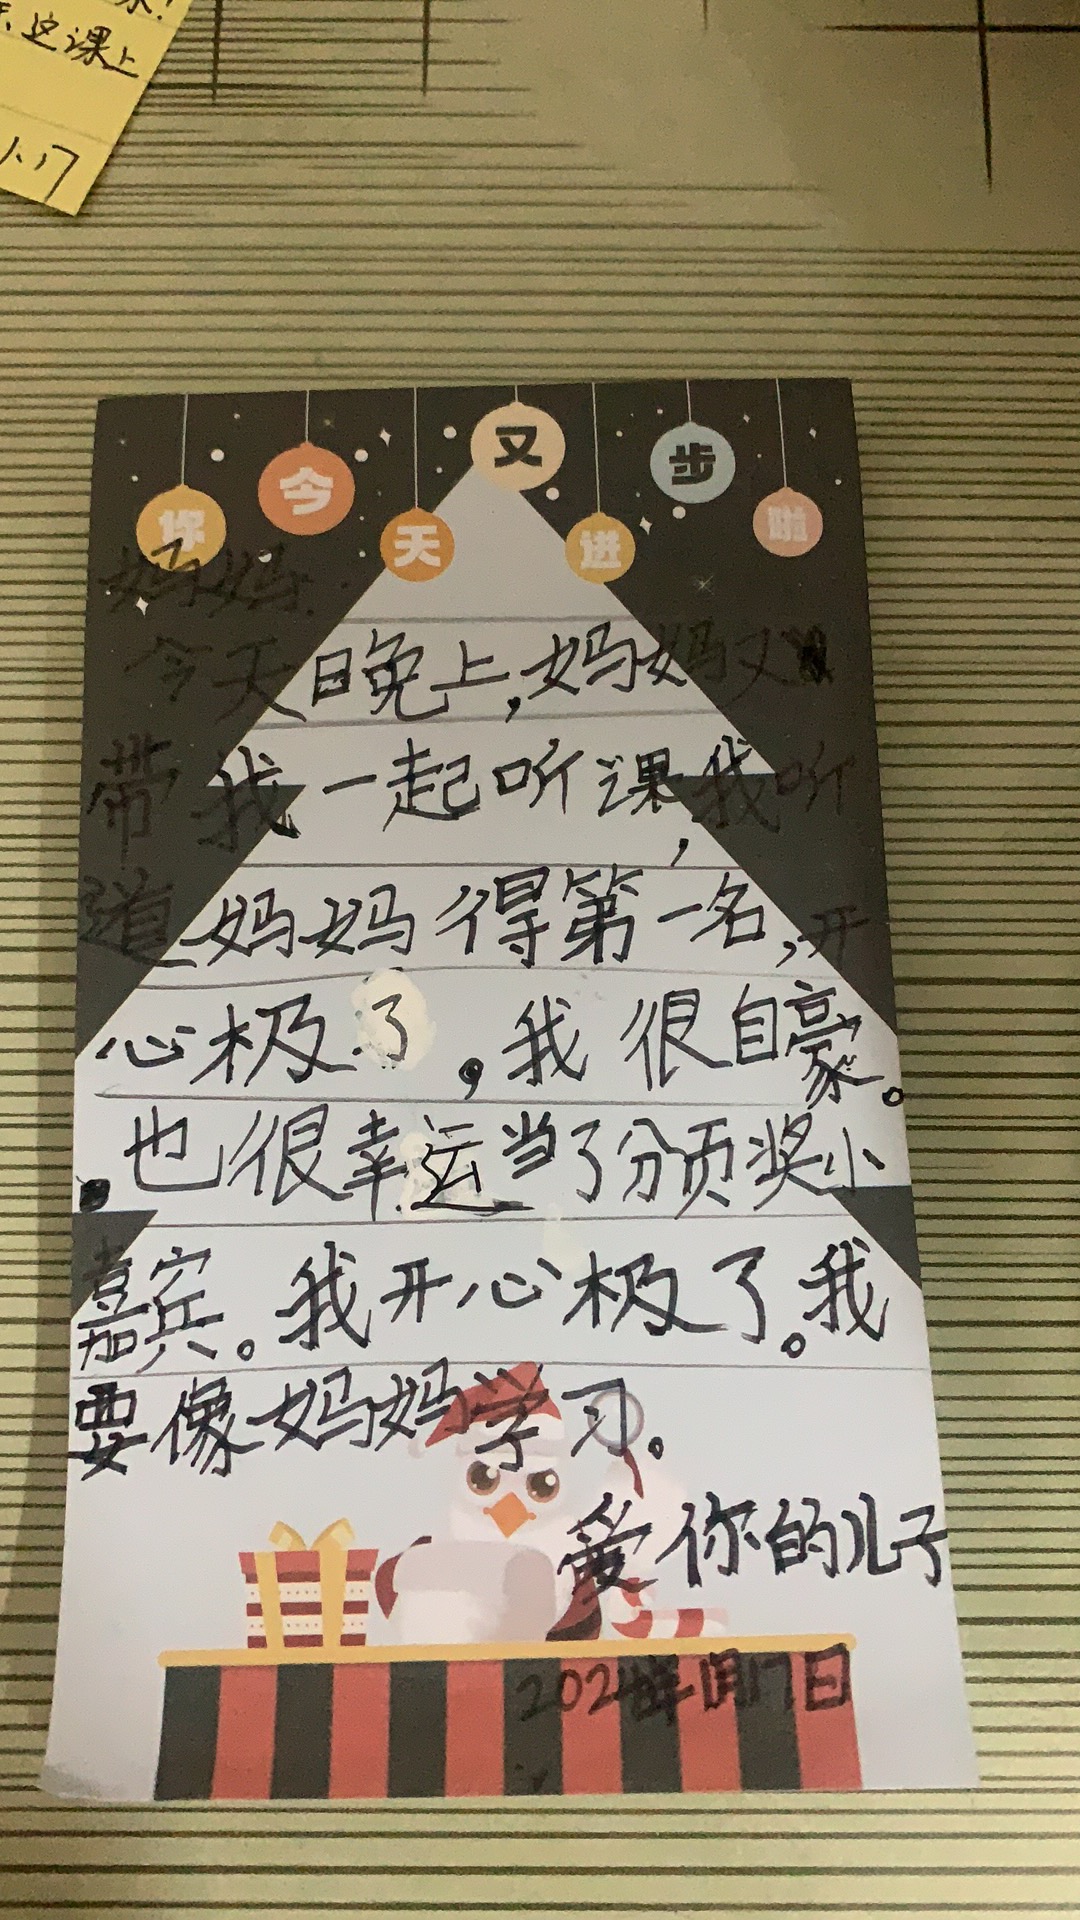 这课上
1.17
你今天又进步啦
妈妈:
今天日晚上,妈妈又
带我一起听课,我听
道妈妈得第一名,开
心极了,我很自豪。
也很幸运当了分颁奖小
嘉宾。我开心极了。我
要像妈妈学习。
爱你的儿子
2024年1月17日